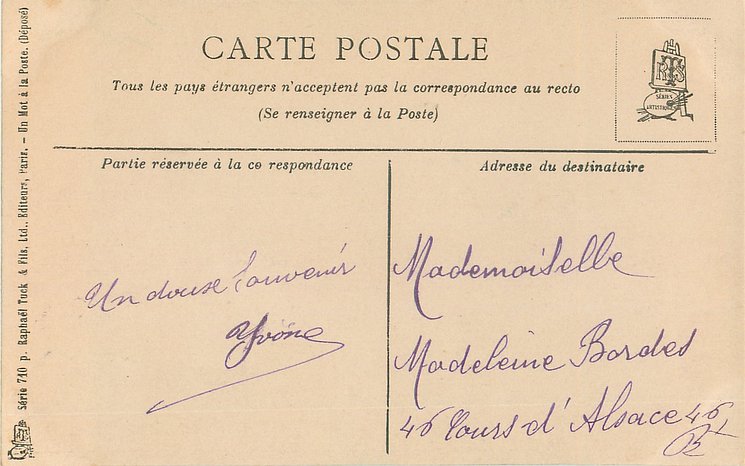 CARTE POSTALE
Tous les pays étrangers n'acceptent pas la correspondance au recto
(Se renseigner à la Poste)
RTS
SÉRIES
ARTISTIQUES
Partie réservée à la co respondance
Adresse du destinataire
Un douse Souvenir
Yvône
Mademoiselle
Madeleine Bordes
46 Cours d'Alsace 46
Bx
Série 710 p. Raphaël Tuck & Fils, Ltd., Editeurs, Paris. — Un Mot à la Poste. (Déposé)